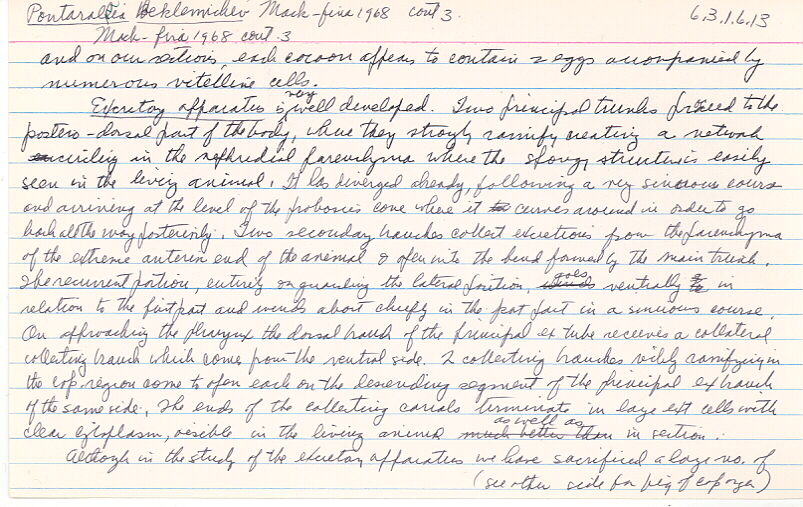 Pontaralia Beklemichev Mack-fira 1968 cont 3. 6.3.1.6.13
Mack-fira 1968 cont. 3
and on our sections, each cocoon appears to contain 2 eggs accompanied by
numerous vitelline cells.
Excretory apparatus is very well developed. Two principal trunks proceed to the
postero-dorsal part of the body, where they strongly ramify creating a network
in the nephridial parenchyma where the spongy structure is easily
seen in the living animal. It has diverged already, following a very sinuous course
and arriving at the level of the proboscis cone where it curves around in order to go
back all the way posteriorly. Two secondary branches collect excretions from the parenchyma
of the extreme anterior end of the animal & open into the bend formed by the main trunk.
The recurrent portion, entirely guarding the lateral position, goes ventrally in
relation to the first part and winds about chiefly in the post part in a sinuous course.
On approaching the pharynx the dorsal branch of the principal ex tube receives a collateral
collecting branch which comes from the ventral side. 2 collecting branches richly ramifying in
the cop. region come to open each on the descending segment of the principal ex branch
of the same side. The ends of the collecting canals terminate in large ext cells with
clear cytoplasm, visible in the living animal as well as in section.
Although in the study of the excretory apparatus we have sacrificed a large no. of
(see other side for fig of cop organ)